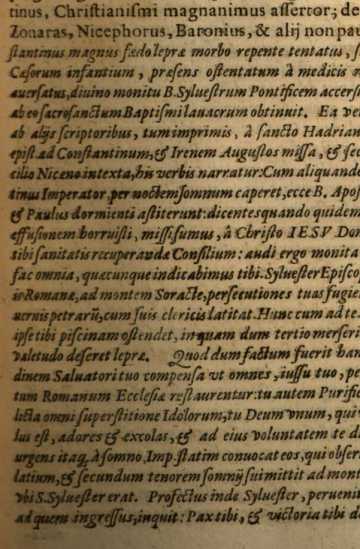 tinus, Christianismi magnanimus assertor; de
Zonaras, Nicephorus, Baronius, & alij non pau
stantinus magnus fædo lepræ morbo repente tentatus, s
Cæsorum infantium, præsens ostentatum à medicis r
auersatus, diuino monitu B. Syluestrum Pontificem accersi
ab eo sacrosanctum Baptismi lauacrum obtinuit. Ea ve
ab alijs scriptoribus, tum imprimis, à sancto Hadrian
epist. ad Constantinum, & Irenem Augustos missa, & sec
cilio Nicæno intexta, his verbis narratur: Cum aliquande
tinus Imperator, per noctem somnum caperet, ecce B. Apos
& Paulus dormienti astiterunt: dicentes quando quidem
effusionem horruisti, missi sumus, à Christo IESV Don
tibi sanitatis recuperandæ Consilium: audi ergo monita
fac omnia, quæcunque indicabimus tibi. Syluester Episcop
io Romanæ, ad montem Soracte, persecutiones tuas fugien
uernis petrarũ, cum suis clericis latitat. Hunc cum ad te
ipse tibi piscinam ostendet, in quam dum tertio merseri
valetudo deseret lepræ. Quod dum factum fuerit han
dinem Saluatori tuo compensa vt omnes, iussu tuo, pe
tum Romanum Ecclesiæ restaurentur: tu autem Purific
licta omni superstitione Idolorum, tu Deum vnum, qui
lus est, adores & excolas, & ad eius voluntatem te di
urgens itaq, à somno, Imp. statim conuocat eos, qui obser
latium, & secundum tenorem somnÿ sui mittit ad mont
vbi S. Syluester erat. Profectus inde Syluester, perueni
ad quem ingressus, inquit: Pax tibi, & victoria tibi de